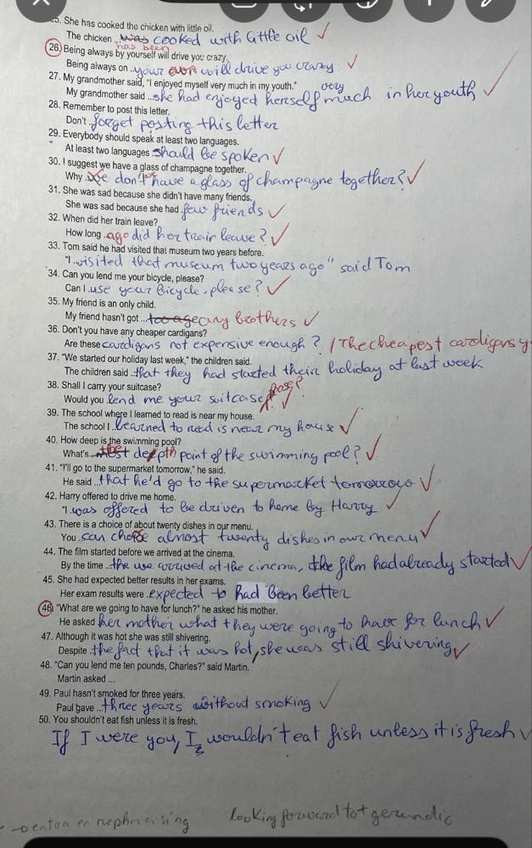 25. She has cooked the chicken with little oil.
has been
The chicken was cooked with little oil ✓
26. Being always by yourself will drive you crazy.
Being always on your own will drive you crazy ✓
27. My grandmother said, "I enjoyed myself very much in my youth."
My grandmother said ... she had enjoyed herself very much in her youth ✓
28. Remember to post this letter.
Don't forget posting this letter
29. Everybody should speak at least two languages.
At least two languages should be spoken ✓
30. I suggest we have a glass of champagne together.
Why don't we have a glass of champagne together? ✓
31. She was sad because she didn't have many friends.
She was sad because she had few friends ✓
32. When did her train leave?
How long ago did her train leave? ✓
33. Tom said he had visited that museum two years before.
"I visited that museum two years ago" said Tom
34. Can you lend me your bicycle, please?
Can I use your bicycle, please? ✓
35. My friend is an only child.
My friend hasn't got any brothers ✓
36. Don't you have any cheaper cardigans?
Are these cardigans not expensive enough? / The cheapest cardigans y
37. "We started our holiday last week," the children said.
The children said that they had started their holiday at last week
38. Shall I carry your suitcase?
Would you lend me your suitcase
39. The school where I learned to read is near my house.
The school I learned to read is near my house ✓
40. How deep is the swimming pool?
What's depth point of the swimming pool? ✓
41. "I'll go to the supermarket tomorrow," he said.
He said that he'd go to the supermarket tomorrow ✓
42. Harry offered to drive me home.
"I was offered to be driven to home by Harry ✓
43. There is a choice of about twenty dishes in our menu.
You can choose almost twenty dishes in our menu ✓
44. The film started before we arrived at the cinema.
By the time the we arrived at the cinema, the film had already started ✓
45. She had expected better results in her exams.
Her exam results were expected to had been better
46. "What are we going to have for lunch?" he asked his mother.
He asked her mother what they were going to have for lunch ✓
47. Although it was hot she was still shivering.
Despite the fact that it was hot, she was still shivering ✓
48. "Can you lend me ten pounds, Charles?" said Martin.
Martin asked ...
49. Paul hasn't smoked for three years.
Paul have three years without smoking ✓
50. You shouldn't eat fish unless it is fresh.
If I were you, I wouldn't eat fish unless it is fresh ✓
looking forward to + gerundic